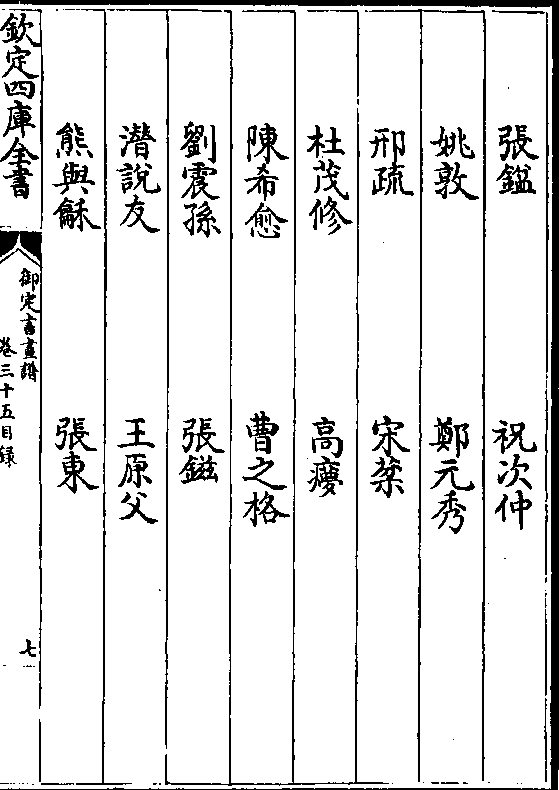 張鎰 祝次仲
姚敦 鄭元秀
邢疏 宋棐
杜茂修 高𤸷
陳希愈 曹之格
劉震孫 張鎡
潛說友 王原父
熊與龢 張東
欽定四庫全書
御定書畫譜
卷三十五目録
七